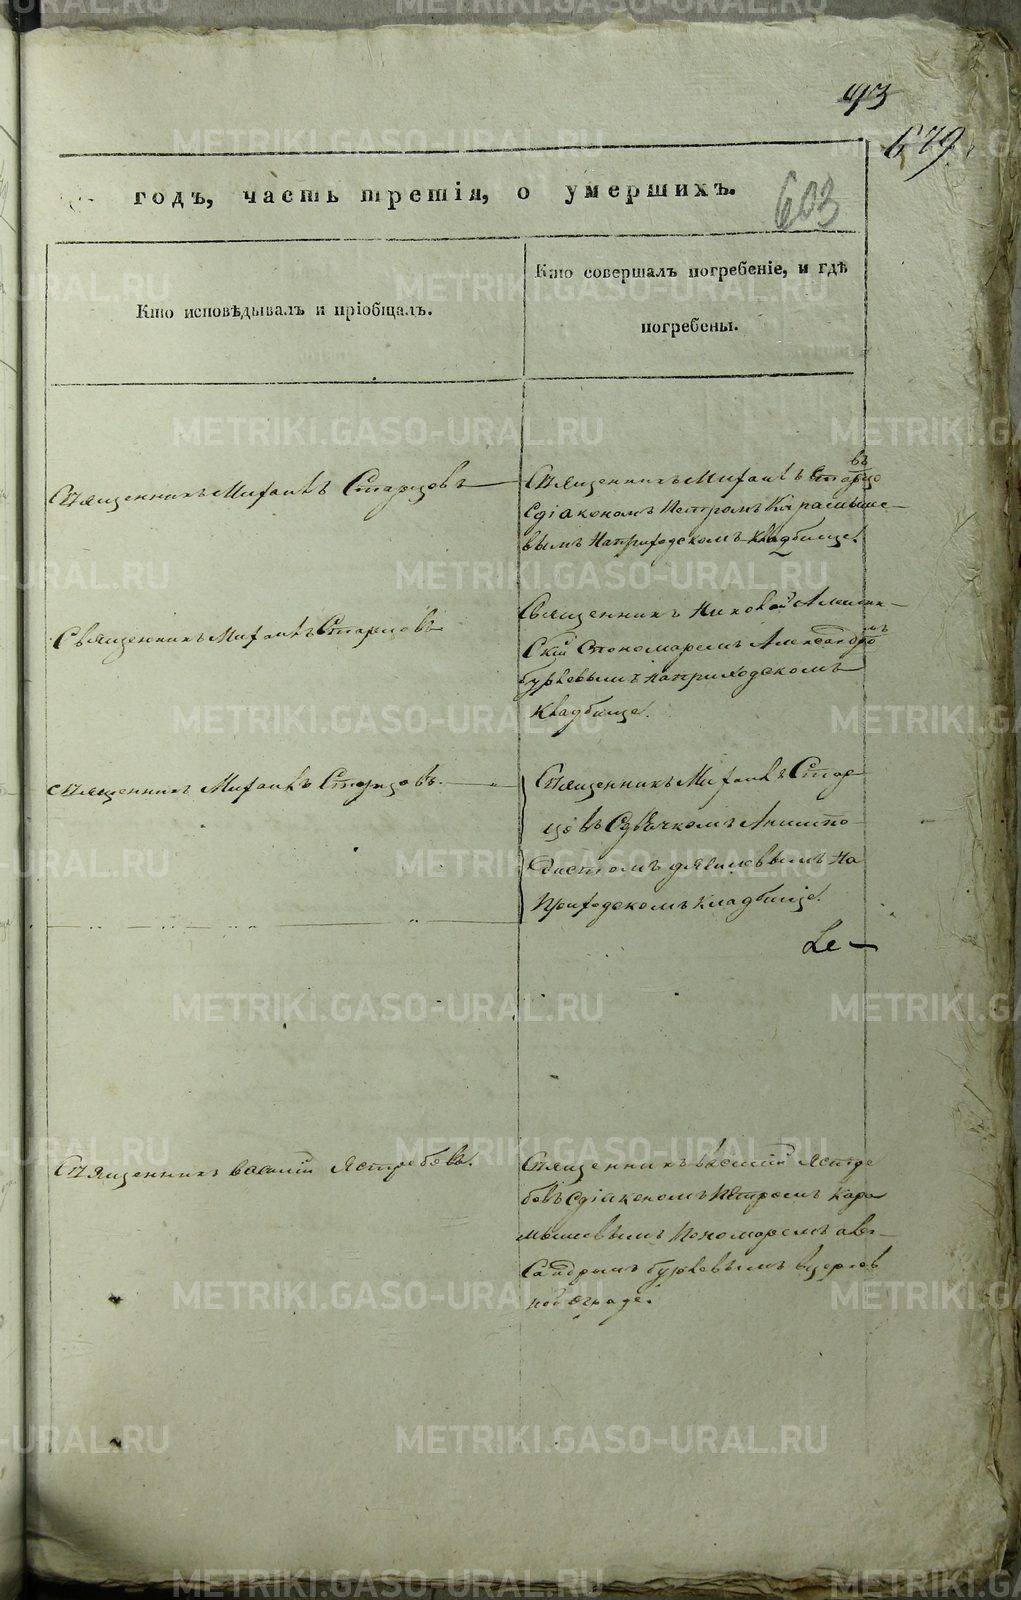 93
679.
603
годъ, часть третія, о умершихъ.
Кто исповѣдывалъ и пріобщалъ.
Кто совершалъ погребеніе, и гдѣ
погребены.
Священникъ Михаилъ Старцовъ
Священникъ Михаилъ Старцо
въ
Сдіакономъ Петромъ Карамыше-
вымъ Наприходскомъ Кладбище.
Священникъ Михаилъ Старцовъ
Священникъ Николай
Спономаремъ Александро
мъ
бурковымъ наприходскомъ
Кладбище.
Священникъ Михаилъ Старцовъ.
Священникъ Михаилъ Стар
цовъ Сдьячкомъ
На
Приходскомъ кладбище.
Священникъ василій Ястребовъ.
Священникъ василій Ястре
бовъ Сдіакономъ Петромъ Кара
мышевымъ Пономаремъ алек-
Сандромъ бурковымъ вцерков
ной оградѣ.
METRIKI.GASO-URAL.RU